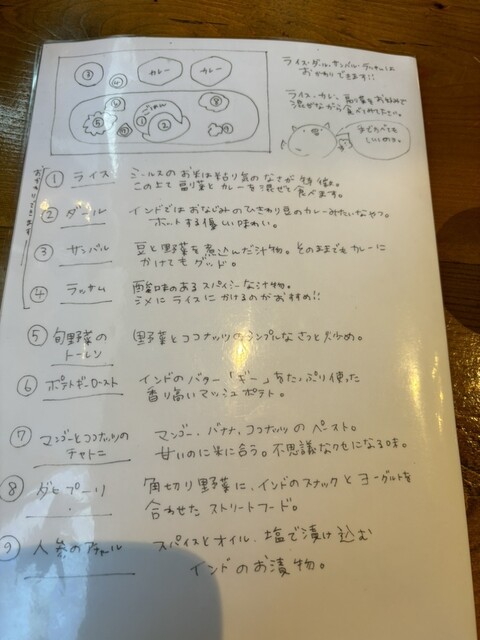 ライス・ダール・サンバル・ラッサムは
おかわりできます!!
ライス、カレー、副菜をお好みで
混ぜながら食べてみて下さい。
まぜたべても
いいのよ。
③
④
カレー
カレー
ごはん
①
②
おかわりできます。
① ライス
ミールスのお米は粘り気のなさが特徴。
この上で副菜とカレーを混ぜて食べます。
② ダール
インドではおなじみのひきわり豆のカレーみたいなやつ。
ホッとする優しい味わい。
③ サンバル
豆と野菜を煮込んだ汁物。そのままでもカレーに
かけてもグッド。
④ ラッサム
酸味のあるスパイシーな汁物。
シメにライスにかけるのがおすすめ!!
⑤ 旬野菜の
トーレン
野菜とココナッツのシンプルなさっと炒め。
⑥ ポテトギーロースト
インドのバター「ギー」をたっぷり使った
香り高いマッシュポテト。
⑦ マンゴーとココナッツの
チャトニ
マンゴー、バナナ、ココナッツのペースト。
甘いのに米に合う。不思議なクセになる味。
⑧ ダヒプーリ
角切り野菜に、インドのスナックとヨーグルトを
合わせたストリートフード。
⑨ 人参のアチャール
スパイスとオイル、塩で漬け込む
インドのお漬物。